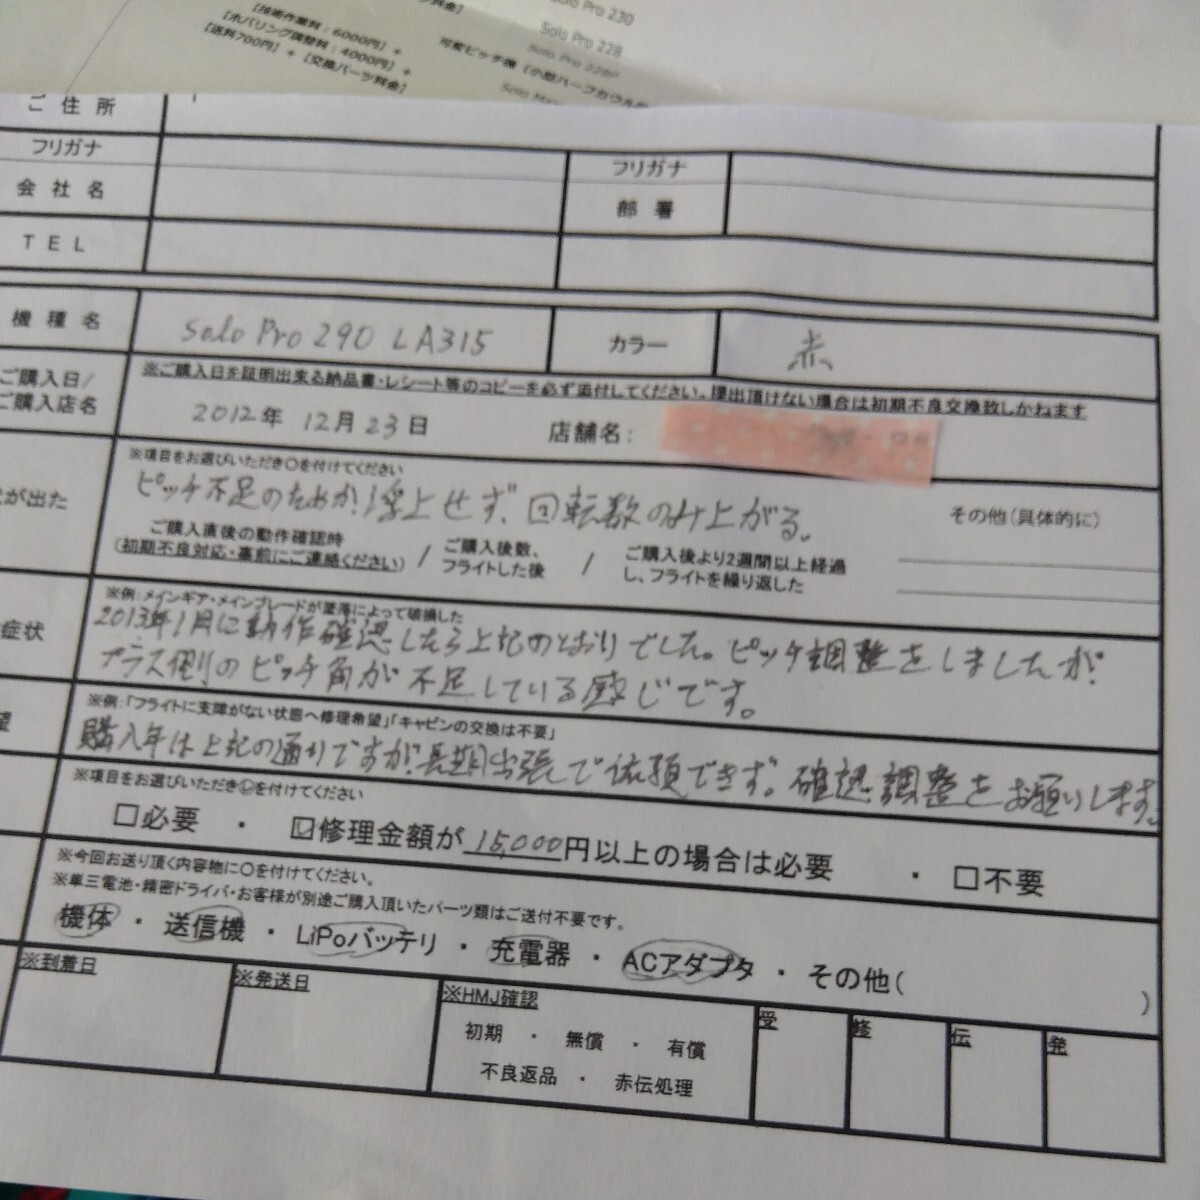 【技術作業料：6000円】+
【ホバリング調整料：4000円】+
【送料700円】+【交換パーツ料金】
Solo Pro 230
Solo Pro 228
Solo Pro 228P
ご住所
フリガナ
フリガナ
会社名
部署
TEL
機種名
Solo Pro 290 LA315
カラー
赤
ご購入日/
ご購入店名
※ご購入日を証明出来る納品書・レシート等のコピーを必ず添付してください。提出頂けない場合は初期不良交換致しかねます
2012年 12月23日
店舗名：
が出た
※項目をお選びいただき〇を付けてください
ピッチ不足のためか浮上せず、回転数のみ上がる。
その他（具体的に）
ご購入直後の動作確認時
（初期不良対応・事前にご連絡ください）
/
ご購入後数、
フライトした後
/
ご購入後より2週間以上経過
し、フライトを繰り返した
症状
※例：メインギア・メインブレードが墜落によって破損した
2013年1月に動作確認したら上記のとおりでした。ピッチ調整をしましたが
プラス側のピッチ角が不足している感じです。
望
※例：「フライトに支障がない状態へ修理希望」「キャビンの交換は不要」
購入年は上記の通りですが長期出張で依頼できず。確認調整をお願いします。
※項目をお選びいただき㋹を付けてください
□必要 ・ ☑修理金額が 15,000 円以上の場合は必要 ・ □不要
※今回お送り頂く内容物に〇を付けてください。
※単三電池・精密ドライバ・お客様が別途ご購入頂いたパーツ類はご送付不要です。
機体 ・ 送信機 ・ LiPoバッテリ ・ 充電器 ・ ACアダプタ ・ その他（ ）
※到着日
※発送日
※HMJ確認
初期 ・ 無償 ・ 有償
不良返品 ・ 赤伝処理
受
修
伝
発